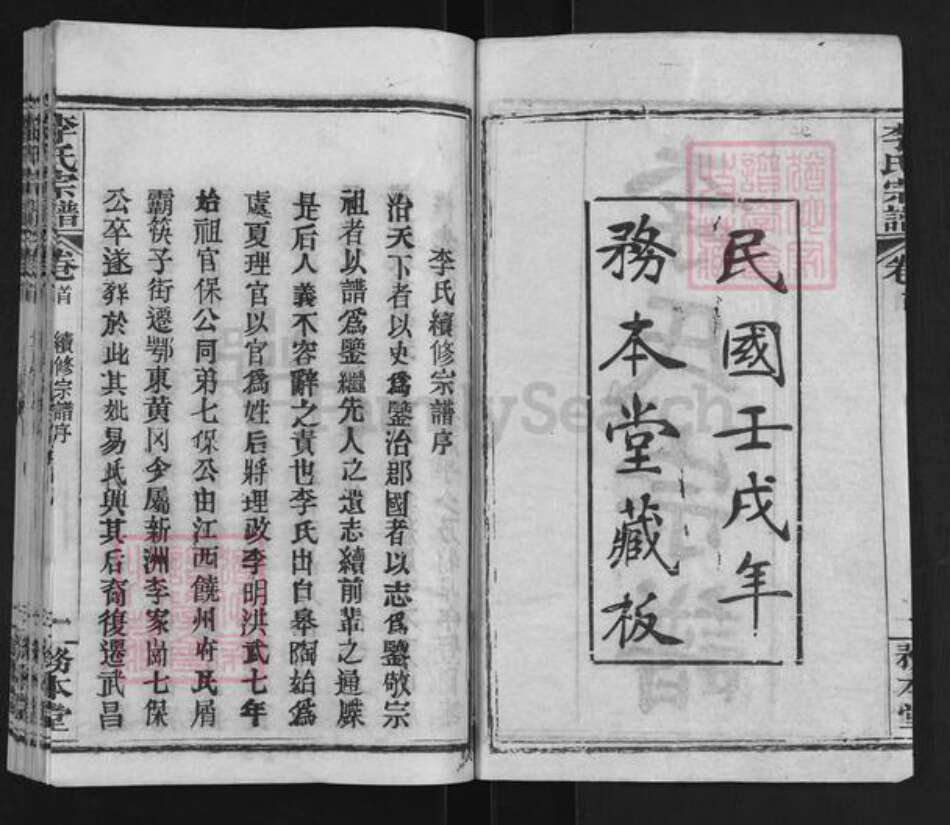 民國壬戌年
務本堂藏板
李氏宗譜
卷
務本堂
李氏續修宗譜序
治天下者以史爲鑒治郡國者以志爲鑒敬宗
祖者以譜爲鑒繼先人之遺志續前輩之通牒
是后人義不容辭之責也李氏出自皋陶始爲
虞夏理官以官爲姓后將理改李明洪武七年
始祖官保公同弟七保公由江西饒州府瓦屑
霸筷子街遷鄂東黄冈今屬新洲李家崗七保
公卒遂葬於此其妣易氏與其后裔復遷武昌
李氏宗譜
卷首
續修宗譜序
一
務本堂
FamilySearch